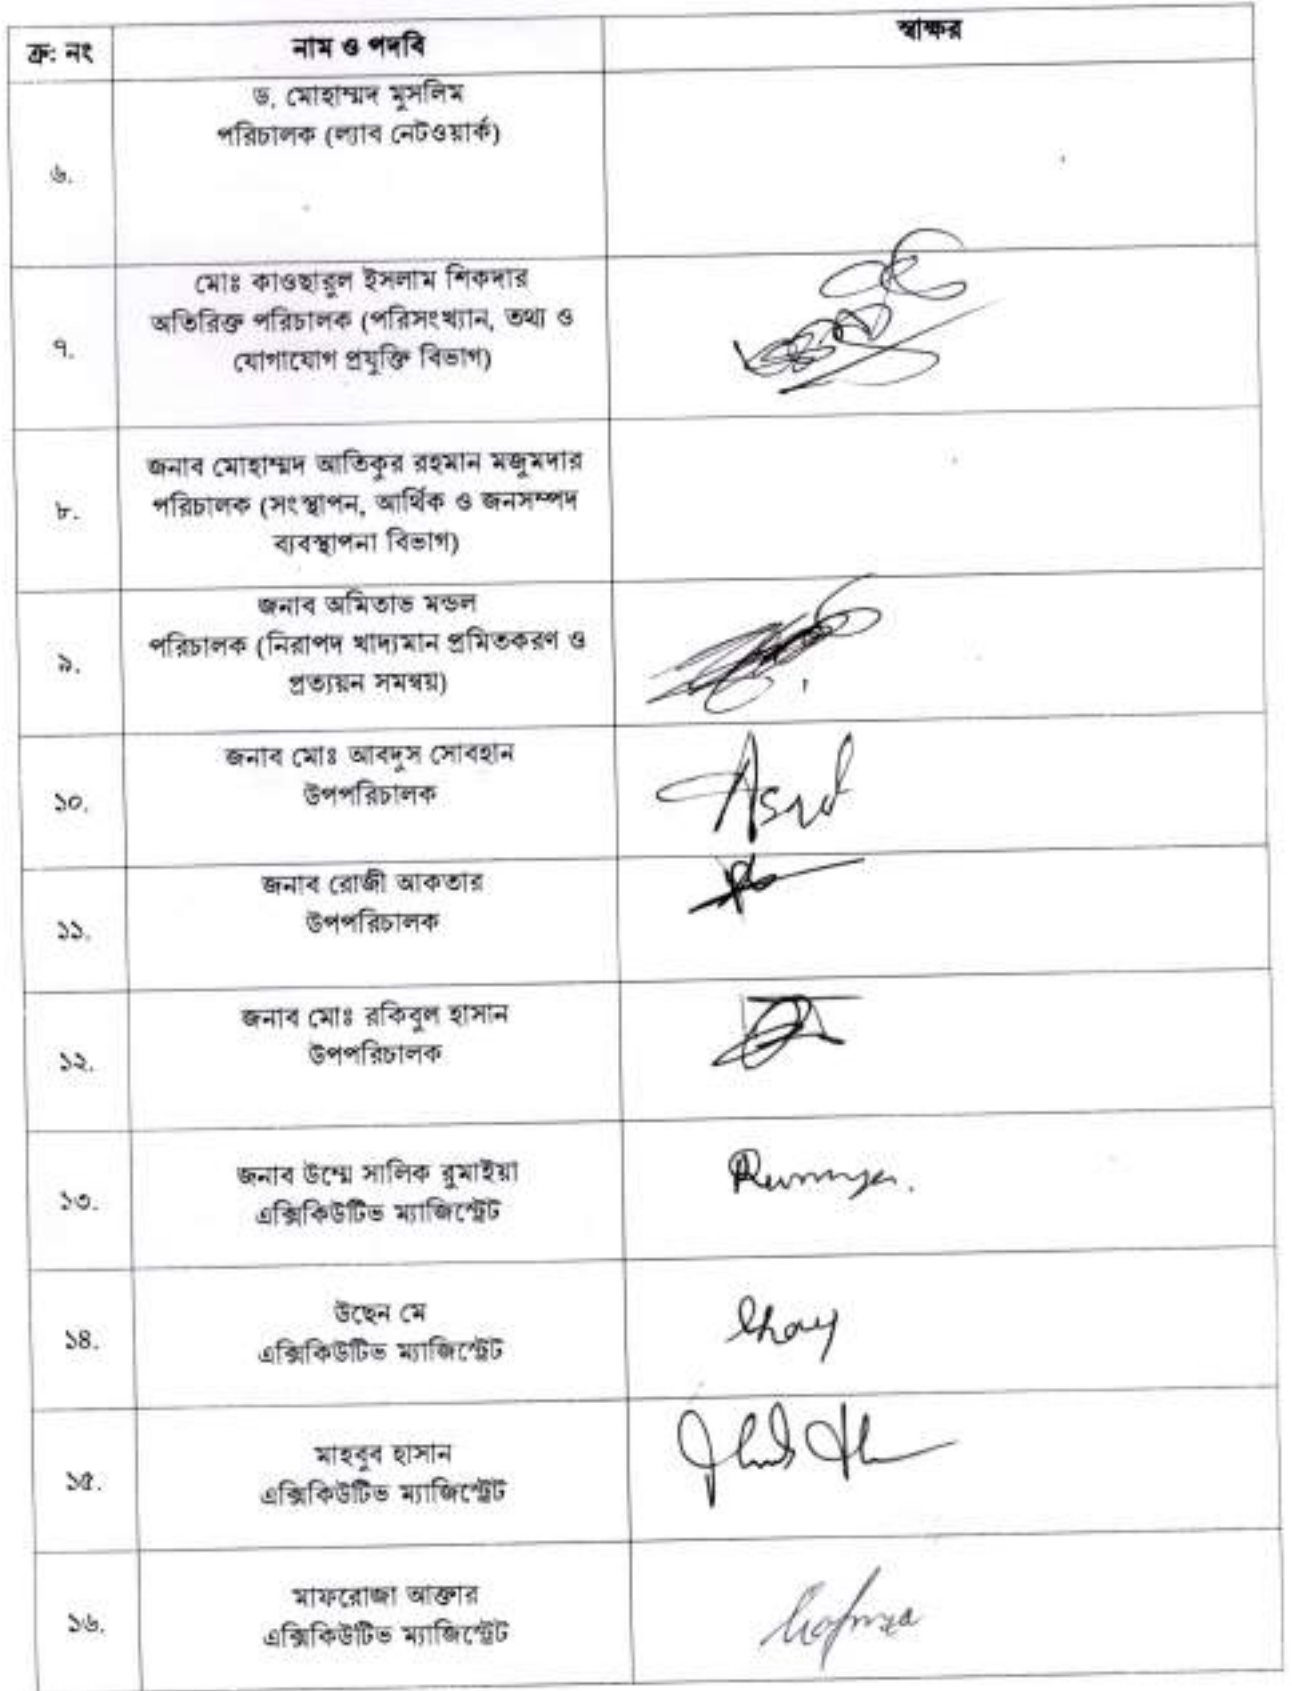 ক্র: নং নাম ও পদবি স্বাক্ষর
ড. মোহাম্মদ মুসলিম
পরিচালক (ল্যাব নেটওয়ার্ক)
৬.
মোঃ কাওছারুল ইসলাম শিকদার
অতিরিক্ত পরিচালক (পরিসংখ্যান, তথ্য ও
৭.
যোগাযোগ প্রযুক্তি বিভাগ)
জনাব মোহাম্মদ আতিকুর রহমান মজুমদার
পরিচালক (সংস্থাপন, আর্থিক ও জনসম্পদ
৮.
ব্যবস্থাপনা বিভাগ)
জনাব অমিতাভ মন্ডল
পরিচালক (নিরাপদ খাদ্যমান প্রমিতকরণ ও
৯.
প্রত্যয়ন সমন্বয়)
জনাব মোঃ আবদুস সোবহান
১০. উপপরিচালক
জনাব রোজী আকতার
১১. উপপরিচালক
জনাব মোঃ রকিবুল হাসান
১২. উপপরিচালক
জনাব উম্মে সালিক রুমাইয়া
১৩. এক্সিকিউটিভ ম্যাজিস্ট্রেট
উছেন মে
১৪. এক্সিকিউটিভ ম্যাজিস্ট্রেট
মাহবুব হাসান
১৫. এক্সিকিউটিভ ম্যাজিস্ট্রেট
মাফরোজা আক্তার
১৬. এক্সিকিউটিভ ম্যাজিস্ট্রেট